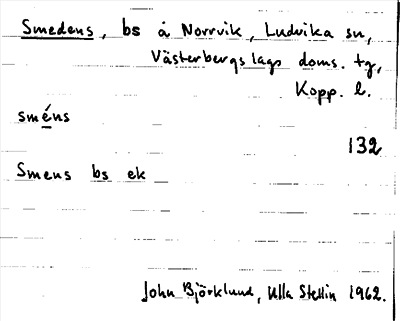 Smedens, bs å Norrvik, Ludvika sn,
Västerbergslags doms. tg,
Kopp. l.
sméns
132
Smens bs ek
John Björklund, Ulla Stellin 1962.